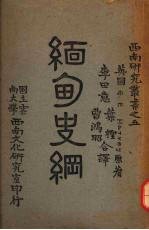 西南研究叢書之五
英國 G. E. Harvey 原著
李田意 葉檉 曹鴻昭 合譯
緬甸史綱
國立雲南大學西南文化研究室印行